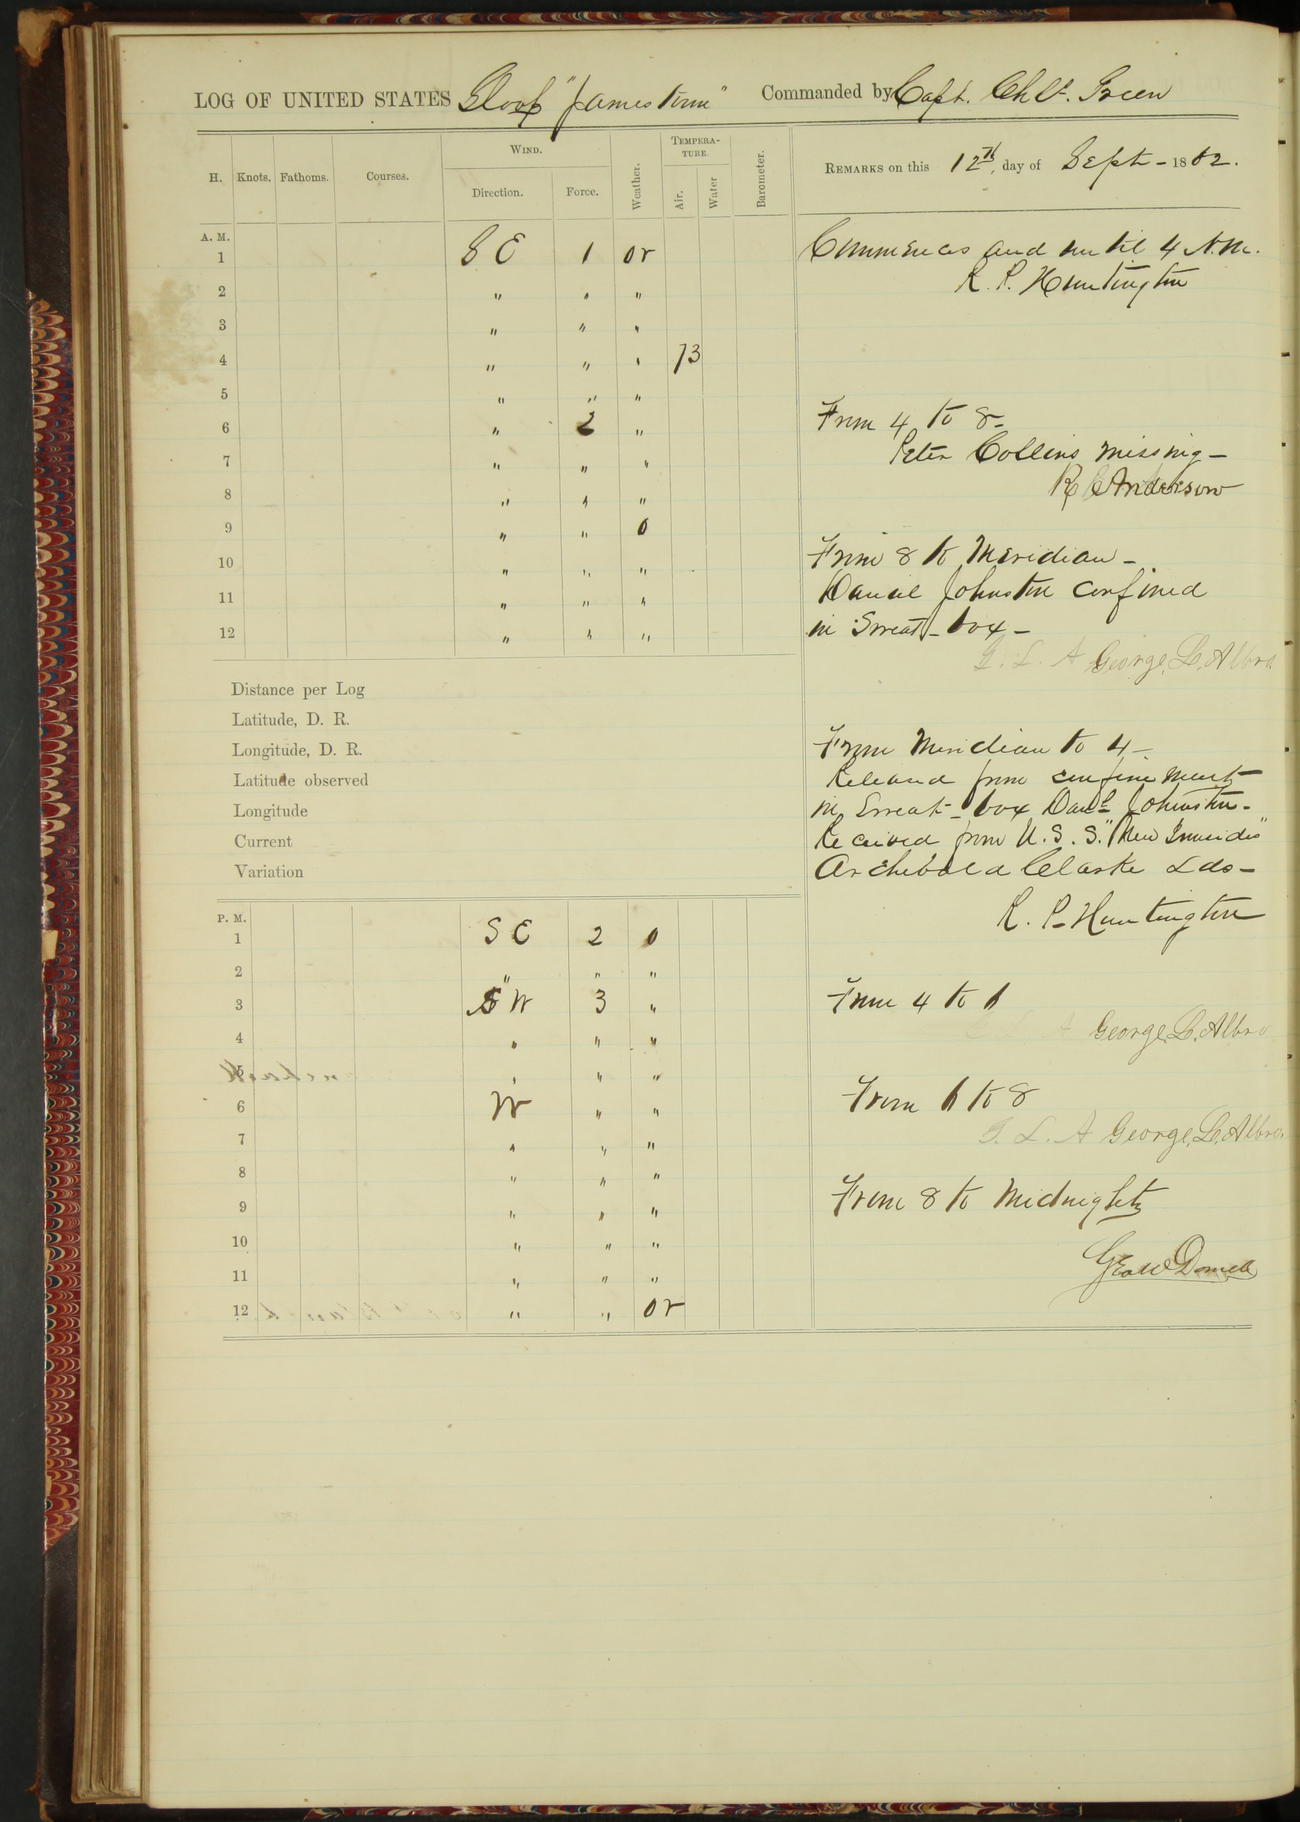 LOG OF UNITED STATES Sloop "Jamestown" Commanded by Capt. Green
H. Knots. Fathoms. Courses. WIND. Direction. Force. Weather. TEMPERATURE. Air. Water Barometer. REMARKS on this 12th, day of Sept - 1862.
A. M.
1 S E 1 or
2 " " "
3 " " "
4 " " " 73
5 " " "
6 " 2 "
7 " " "
8 " " "
9 " " o
10 " " "
11 " " "
12 " " "
Commences and until 4 A.M.
R. P. Huntington
From 4 to 8 -
Peter Collins missing -
R C Anderson
From 8 to Meridian -
Daniel Johnston confined
in Sweat - box -
G. L. A George, L, Albro
Distance per Log
Latitude, D. R.
Longitude, D. R.
Latitude observed
Longitude
Current
Variation
From Meridian to 4 -
Released from confinement
in Sweat - box Danl Johnston -
Received from U. S. S. "New Ironsides"
Archibald Clarke Lds -
R. P. Huntington
P. M.
1 S E 2 o
2 " " "
3 S W 3 "
4 " " "
5 " " "
6 W " "
7 " " "
8 " " "
9 " " "
10 " " "
11 " " "
12 " " or
From 4 to 6
G L A George, L, Albro
From 6 to 8
G. L. A George, L, Albro
From 8 to Midnight